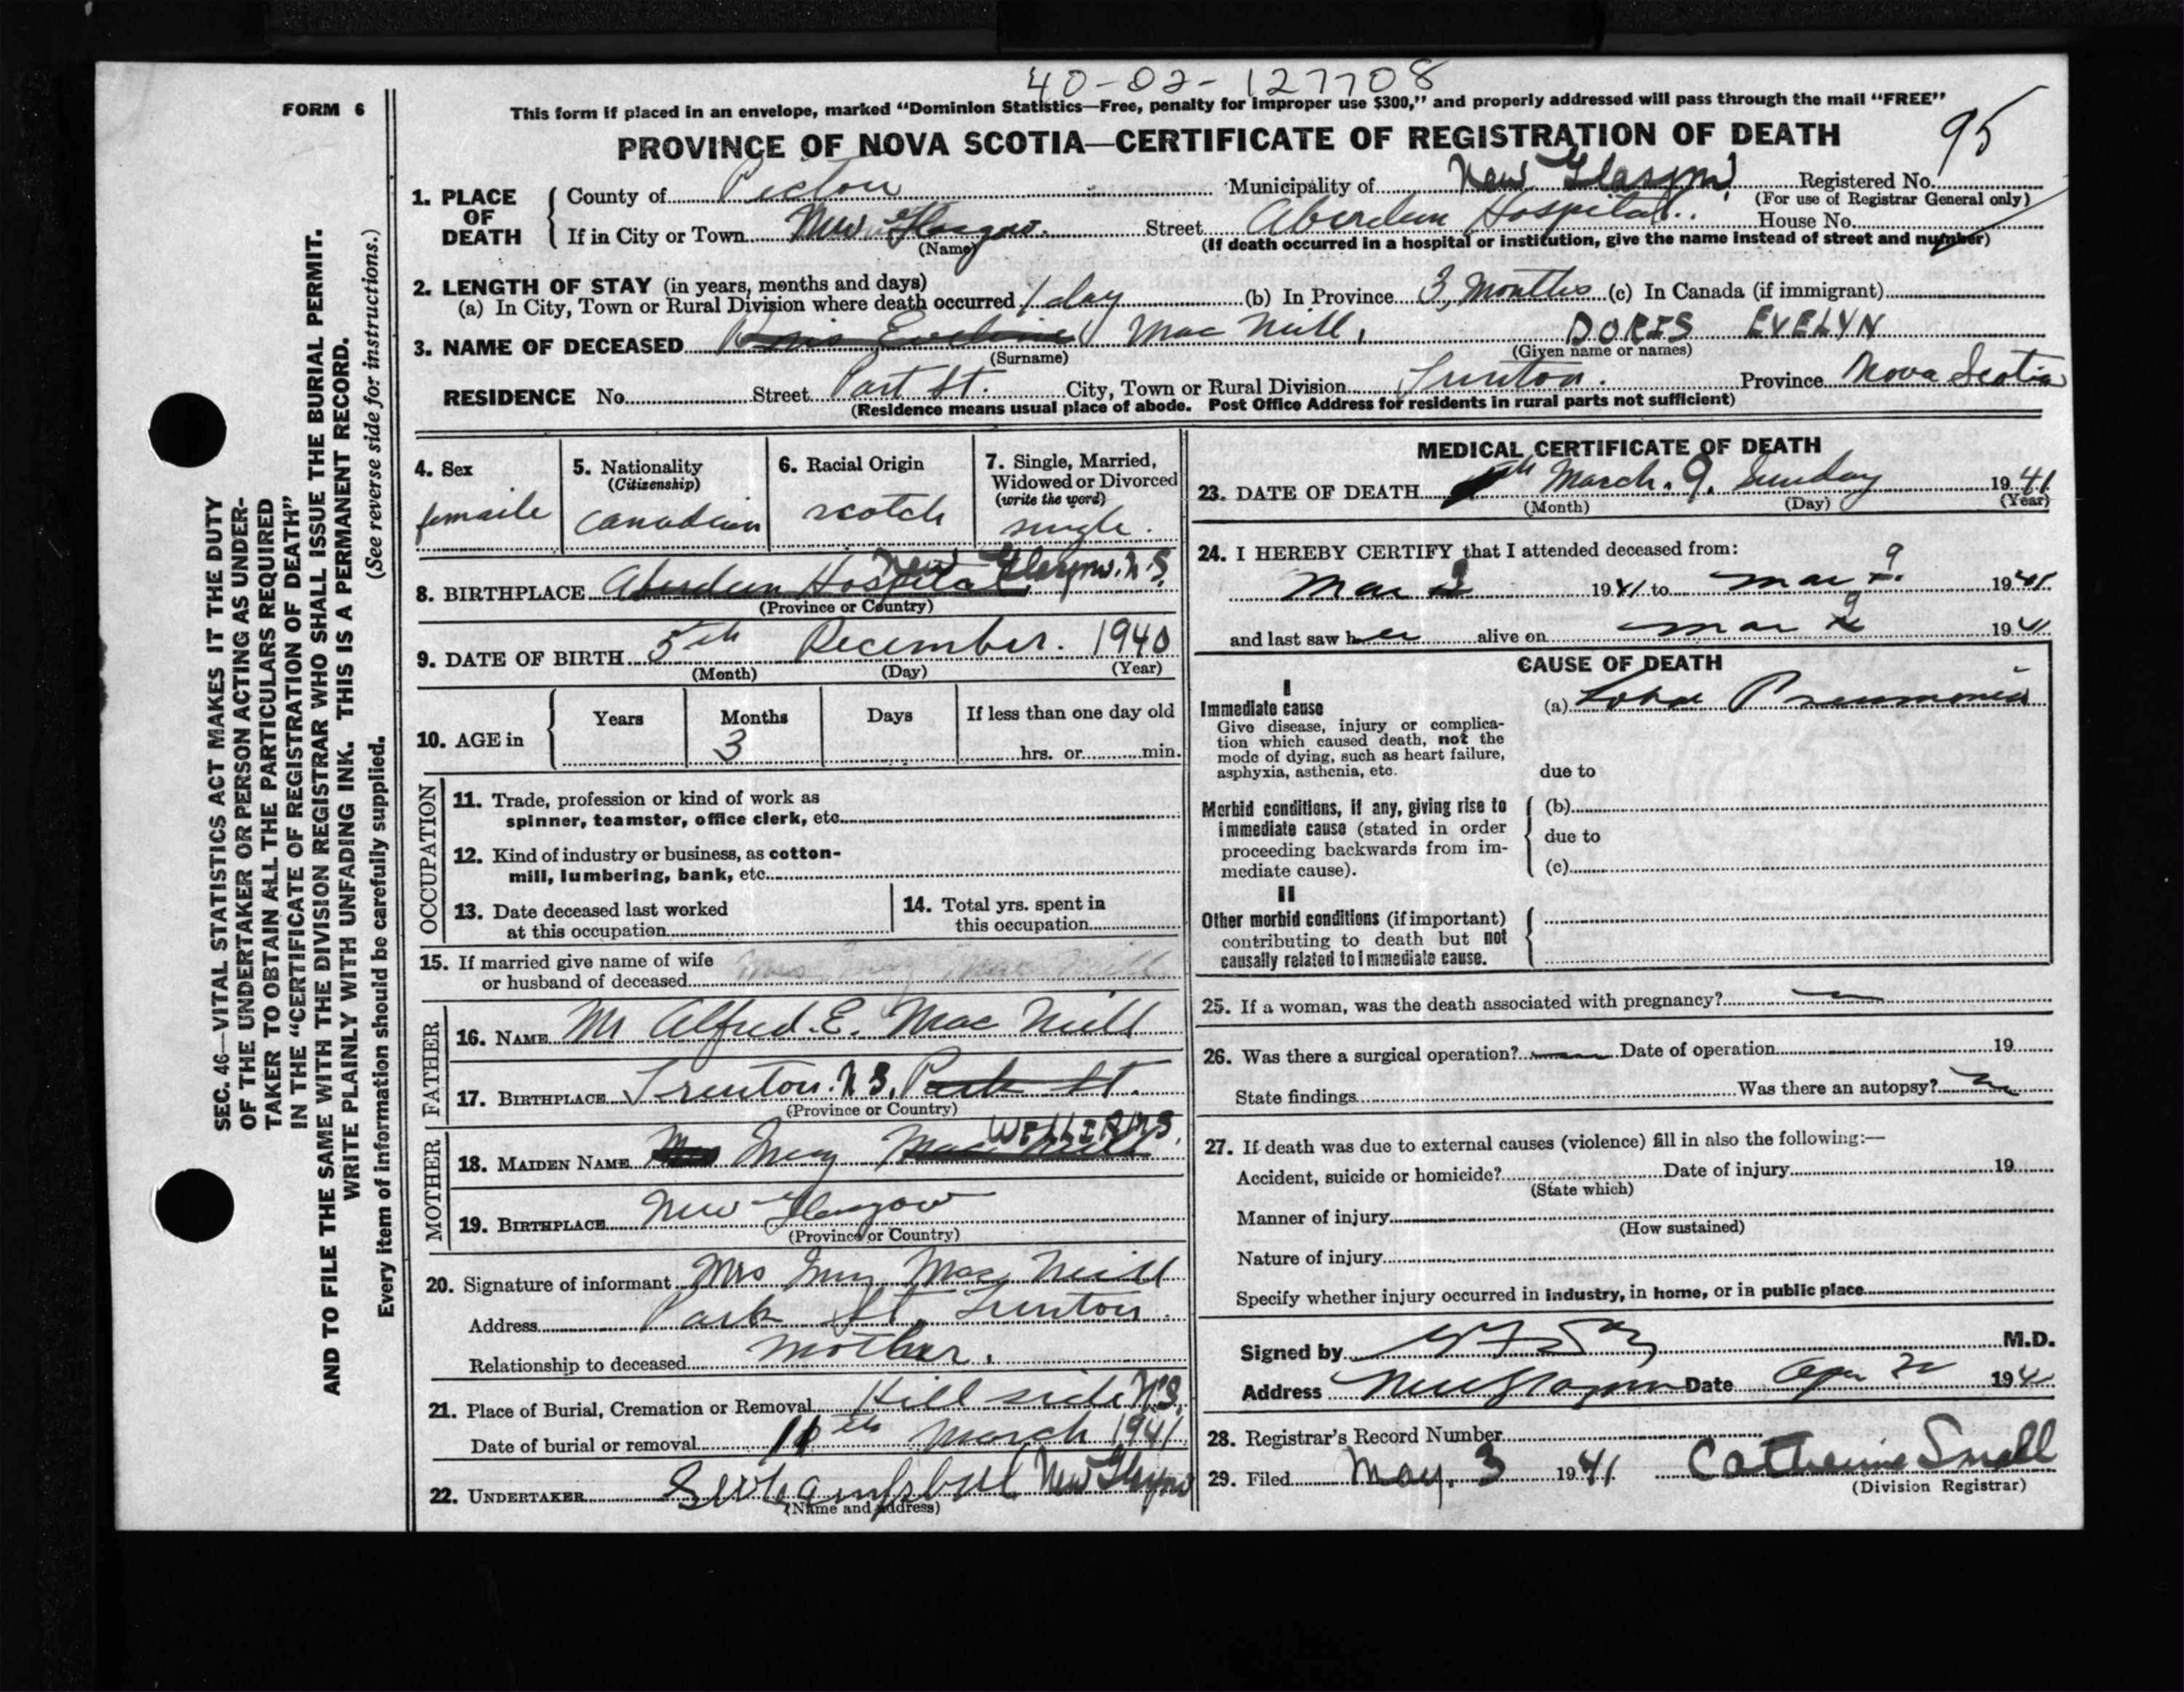 40-02-127708
FORM 6
This form if placed in an envelope, marked "Dominion Statistics—Free, penalty for improper use $300," and properly addressed will pass through the mail "FREE"
PROVINCE OF NOVA SCOTIA—CERTIFICATE OF REGISTRATION OF DEATH
95
1. PLACE OF DEATH
County of Pictou Municipality of New Glasgow Registered No.
(For use of Registrar General only)
If in City or Town New Glasgow. Street Aberdeen Hospital. House No.
(Name)
(If death occurred in a hospital or institution, give the name instead of street and number)
2. LENGTH OF STAY (in years, months and days)
(a) In City, Town or Rural Division where death occurred 1 day (b) In Province 3 Months (c) In Canada (if immigrant)
3. NAME OF DECEASED Doris Eveline Mac Neill, DORIS EVELYN
(Surname) (Given name or names)
RESIDENCE No. Street Part St. City, Town or Rural Division Trenton. Province Nova Scotia
(Residence means usual place of abode. Post Office Address for residents in rural parts not sufficient)
SEC. 46—VITAL STATISTICS ACT MAKES IT THE DUTY
OF THE UNDERTAKER OR PERSON ACTING AS UNDER-
TAKER TO OBTAIN ALL THE PARTICULARS REQUIRED
IN THE "CERTIFICATE OF REGISTRATION OF DEATH"
AND TO FILE THE SAME WITH THE DIVISION REGISTRAR WHO SHALL ISSUE THE BURIAL PERMIT.
WRITE PLAINLY WITH UNFADING INK. THIS IS A PERMANENT RECORD.
Every item of information should be carefully supplied. (See reverse side for instructions.)
4. Sex
femaile
5. Nationality
(Citizenship)
Canadian
6. Racial Origin
scotch
7. Single, Married,
Widowed or Divorced
(write the word)
single.
8. BIRTHPLACE Aberdeen Hospital New Glasgow. N.S.
(Province or Country)
9. DATE OF BIRTH 5th December. 1940
(Month) (Day) (Year)
10. AGE in
Years Months Days If less than one day old
3
hrs. or min.
OCCUPATION
11. Trade, profession or kind of work as
spinner, teamster, office clerk, etc.
12. Kind of industry or business, as cotton-
mill, lumbering, bank, etc.
13. Date deceased last worked
at this occupation
14. Total yrs. spent in
this occupation
15. If married give name of wife
or husband of deceased Mac Neill
FATHER
16. NAME Mr Alfred. E. Mac Neill
17. BIRTHPLACE Trenton. N S. Park St.
(Province or Country)
MOTHER
WILLIAMS,
18. MAIDEN NAME Mrs Mac Neill
19. BIRTHPLACE New Glasgow
(Province or Country)
20. Signature of informant Mrs Mac Neill
Address Park St. Trenton.
Relationship to deceased Mother.
21. Place of Burial, Cremation or Removal Hill side N.S.
Date of burial or removal 11th March 1941
22. UNDERTAKER New Glasgow
(Name and address)
MEDICAL CERTIFICATE OF DEATH
23. DATE OF DEATH March. 9. Sunday 1941
(Month) (Day) (Year)
24. I HEREBY CERTIFY that I attended deceased from:
Mar 1941 to Mar 9 1941
and last saw her alive on Mar 9 1941
CAUSE OF DEATH
I
Immediate cause
Give disease, injury or complica-
tion which caused death, not the
mode of dying, such as heart failure,
asphyxia, asthenia, etc.
(a) Lobar Pneumonia
due to
Morbid conditions, if any, giving rise to
immediate cause (stated in order
proceeding backwards from im-
mediate cause).
(b)
due to
(c)
II
Other morbid conditions (if important)
contributing to death but not
causally related to immediate cause.
25. If a woman, was the death associated with pregnancy?
26. Was there a surgical operation? Date of operation 19
State findings Was there an autopsy? No
27. If death was due to external causes (violence) fill in also the following:—
Accident, suicide or homicide? Date of injury 19
(State which)
Manner of injury
(How sustained)
Nature of injury
Specify whether injury occurred in industry, in home, or in public place
Signed by M.D.
Address New Glasgow Date Apr 1941
28. Registrar's Record Number
29. Filed May. 3 1941. Catherine Small
(Division Registrar)